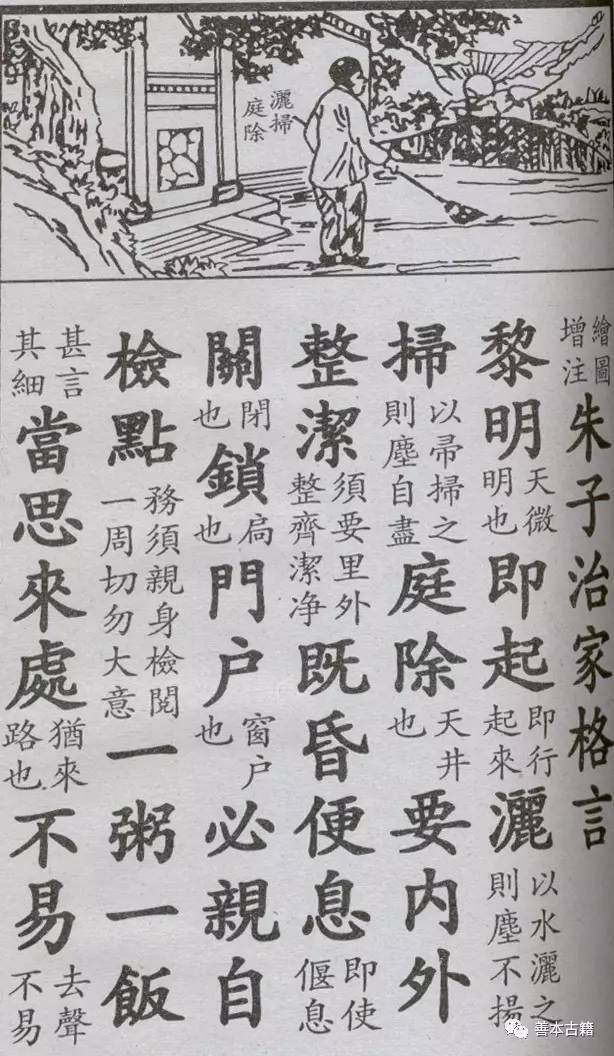 灑掃
庭除
繪圖增注朱子治家格言
黎明天微明也即起即行起來灑以水灑之則塵不揚
掃以帚掃之則塵自盡庭除天井也要内外
整潔須要里外整齊潔净既昏便息即使偃息
關閉也鎖扃也門户窗户也必親自
檢點務須親身檢閲一周切勿大意一粥一飯
甚言其細當思來處猶來路也不易去聲不易
善本古籍